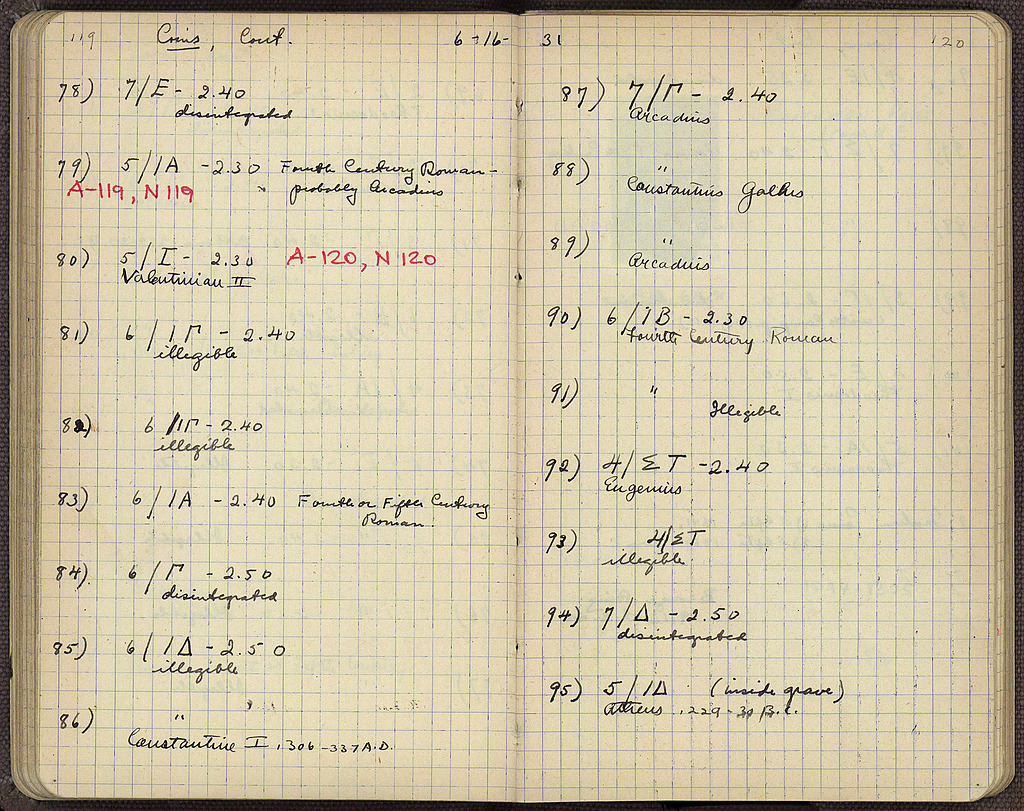 119 Coins, Cont. 6-16-
78) 7/E - 2.40
disintegrated
79) 5/ΙΑ - 2.30 Fourth Century Roman -
A-119, N 119 probably Arcadius
80) 5/Ι - 2.30 A-120, N 120
Valentinian II
81) 6/ΙΓ - 2.40
illegible
82) 6/ΙΓ - 2.40
illegible
83) 6/ΙΑ - 2.40 Fourth or Fifth Century
Roman.
84) 6/Γ - 2.50
disintegrated
85) 6/ΙΔ - 2.50
illegible
86) "
Constantine I, 306-337 A.D.
31 120
87) 7/Γ - 2.40
Arcadius
88) "
Constantius Gallus
89) "
Arcadius
90) 6/ΙΒ - 2.30
Fourth Century Roman
91) "
Illegible
92) 4/ΣΤ - 2.40
Eugenius
93) 4/ΣΤ
illegible
94) 7/Δ - 2.50
disintegrated
95) 5/ΙΔ (inside grave)
Athens, 229-30 B.C.